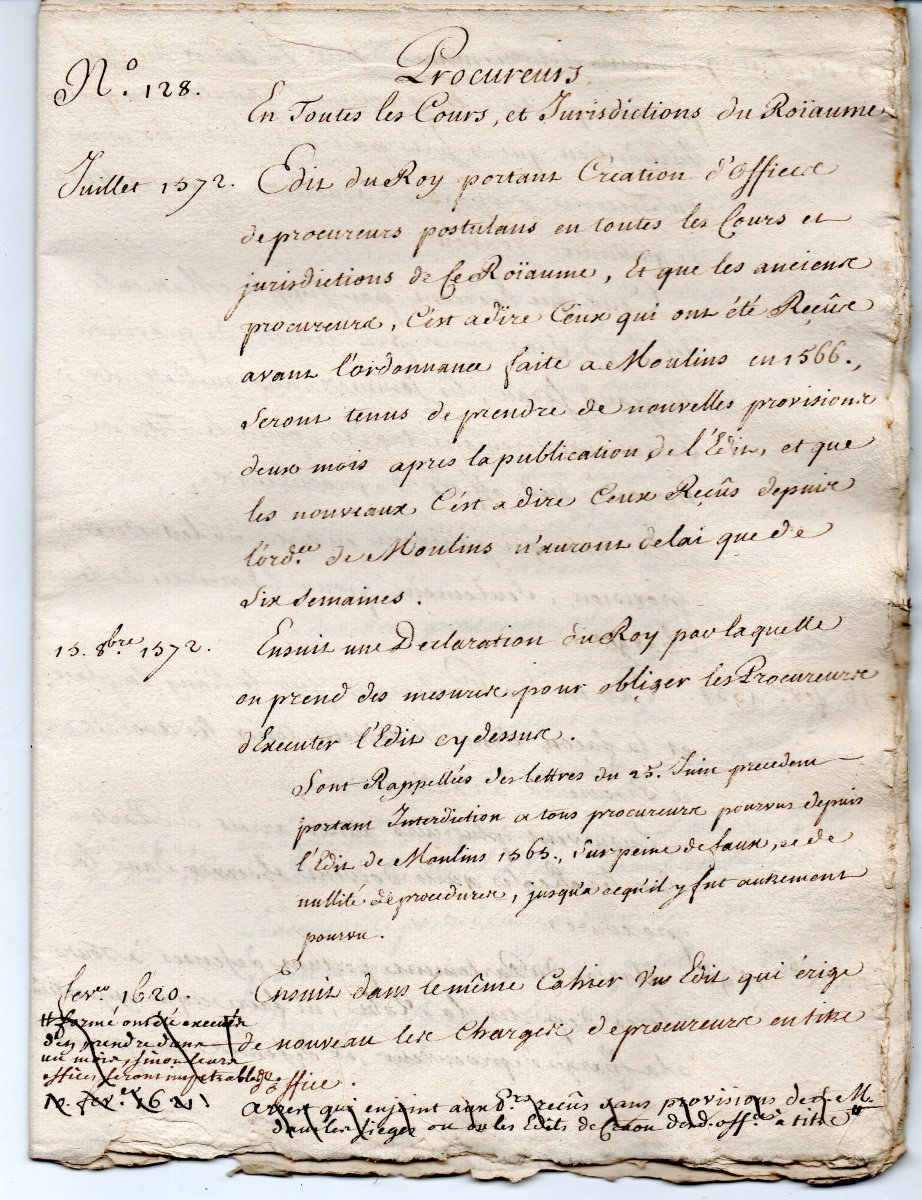 N.º 128.
Procureurs
En Toutes les Cours, et Jurisdictions du Roïaume
Juillet 1572.
Edit du Roy portant Creation d'offices
de procureurs postulans en toutes les Cours et
jurisdictions de Ce Roïaume, Et que les anciens
procureurs, C'est adire Ceux qui ont été Reçûs
avant l'ordonnance faite a Moulins en 1566.,
seront tenus de prendre de nouvelles provisions
deux mois apres la publication de l'Edit, et que
les nouveaux C'est a dire Ceux Reçûs depuis
l'ord.ce de Moulins n'auront delai que de
six semaines.
15. 8bre. 1572.
Ensuit une Declaration du Roy par laquelle
on prend des mesures pour obliger les Procureurs
d'Executer l'Edit cy dessus.
Sont Rappellées des lettres du 25. Juin precedent
portant Interdiction a tous procureurs pourvus depuis
l'Edit de Moulins 1565., sur peine de faux, et de
nullité de procedures, jusqu'a cequ'il y fut autrement
pourvu.
fevr. 1620.
Ensuit dans le même Cahier Un Edit qui érige
de nouveau les Charges de procureurs en titre
d'office.
Arrest qui enjoint aux reçûs sans provisions de S. M.
dans les sieges ou les Edits de d'off. à titre
formé ont été executés
d'en prendre dans
un mois, sinon leurs
offices seront impetrables
fev. 1621